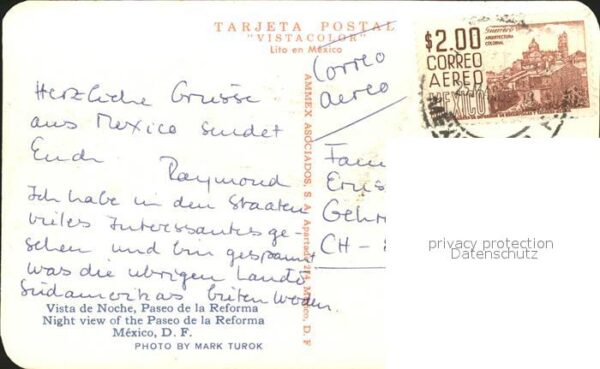 TARJETA POSTAL
"VISTACOLOR"
Lito en México
Herzliche Grüsse
aus Mexico sendet
Euch
Raymond
Ich habe in den Staaten
vieles Interessantes ge-
sehen und bin gespannt
was die übrigen Lande
Südamerikas bieten werden.
Vista de Noche, Paseo de la Reforma
Night view of the Paseo de la Reforma
México, D. F.
PHOTO BY MARK TUROK
AMMEX ASOCIADOS, S. A. Apartado 274, México, D. F
Correo
aereo
Fam
Erns
Gehr
CH -
$2.00
CORREO
AEREO
MEXICO
Guerrero
ARQUITECTURA
COLONIAL
privacy protection
Datenschutz